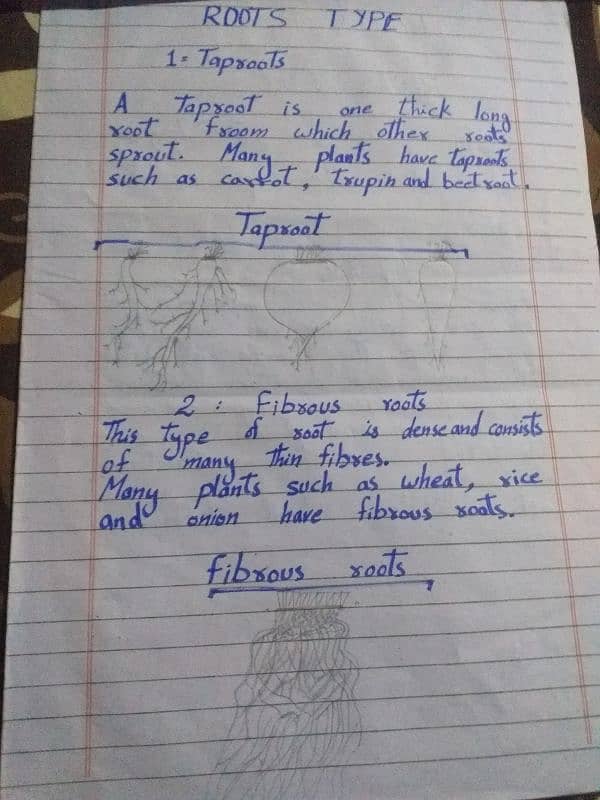 ROOTS TYPE
1= Taproots
A Taproot is one thick long
root froom which other roots
sprout. Many plants have taproots
such as carrot, trupin and beetroot.
Taproot
2 : Fibrous roots
This type of root is dense and consists
of many thin fibres.
Many plants such as wheat, rice
and onion have fibrous roots.
fibrous roots